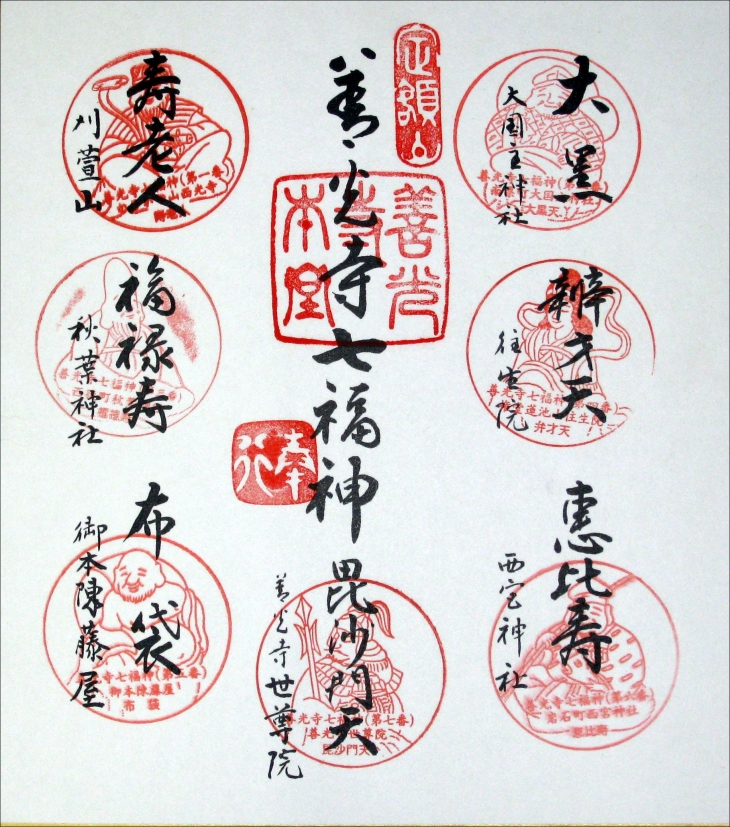 定額山
大黒
大国主神社
善光寺七福神
善光寺本堂
奉行
寿老人
刈萱山
善光寺七福神(第一番
西光寺
大黒天
辨才天
往生院
善光寺七福神(第四番)
往生院
弁才天
福禄寿
秋葉神社
善光寺七福神
恵比寿
西宮神社
善光寺七福神(第六番)
岩石町西宮神社
恵比寿
毘沙門天
善光寺世尊院
善光寺七福神(第七番)
善光寺世尊院
毘沙門天
布袋
御本陳藤屋
寺七福神(第五番
御本陳藤屋
布袋